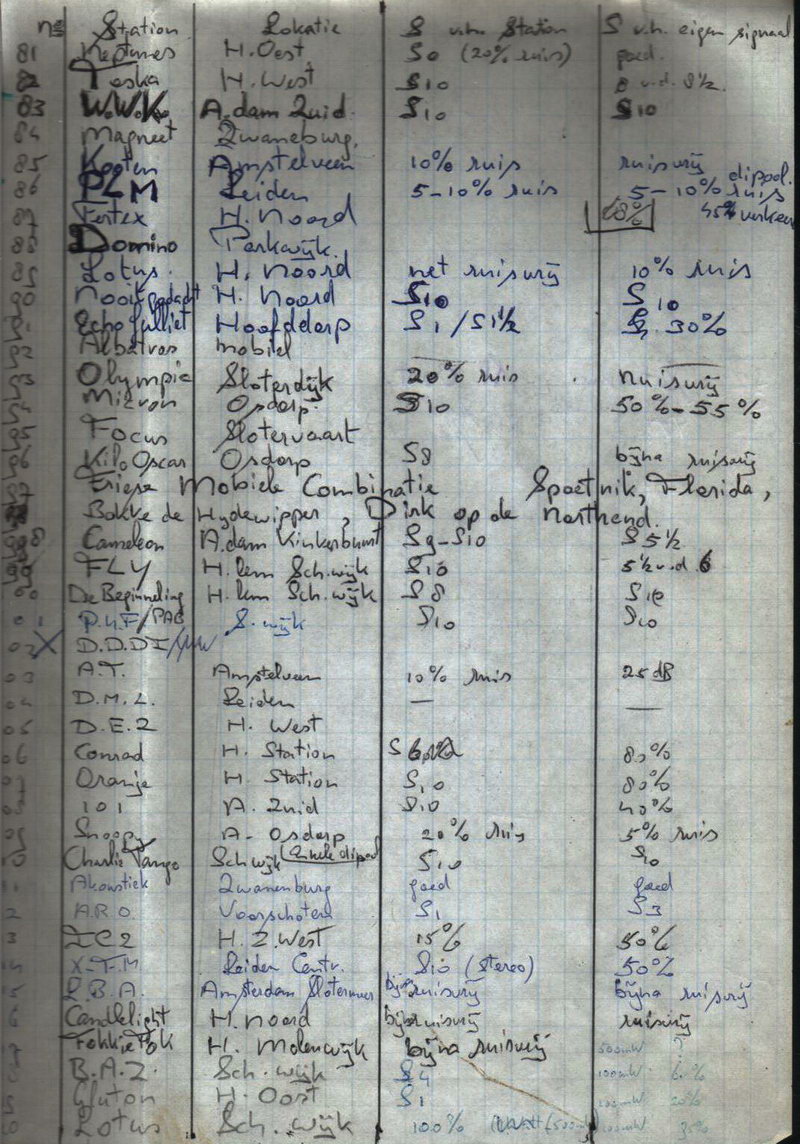 no Station Lokatie S v.h. Station S v.h. eigen signaal
81 Neptunes H.Oost S0 (20% ruis) goed.
82 Toska H.West S10 8 v.d. 8½.
83 W.W.K A.dam Zuid. S10 S10
84 Magneet Zwaneburg.
85 Kooten Amstelveen 10% ruis ruisvrij dipool.
86 PLM Leiden 5-10% ruis 5-10% ruis
87 Fortex H. Noord 68% 45%
88 Domino Parkwijk.
89 Lotus. H. Noord net ruisvrij 10% ruis
90 Nooitgedacht H. Noord S10 S10
Echo Julliet Hoofddorp S1/S1½ 30%
92 Albatros mobiel —
93 Olympic Sloterdijk 20% ruis . ruisvrij
Micron Osdorp. S10 50%-55%
95 Focus Slotervaart
96 Kilo Oscar Osdorp S8 bijna ruisvrij
97 Friese Mobiele Combinatie Spoetnik, Florida,
Bokke de Hydewipper, Dirk op de Northend.
98 Cameleon A.dam Kinkerbuurt S9-S10 S 5½
99 FLY H.lem Sch.wijk S10 5½ v.d. 6
00 De Beginneling H.lem Sch.wijk S8 S10
01 P.H.F/PAC S.wijk S10 S10
02 X D.D.D I/
03 A.T. Amstelveen 10% ruis 25 dB
04 D.M.L. Leiden — —
05 D.E.Z H. West
06 Conrad H. Station S 80%
07 Oranje H. Station S10 80%
08 101 A. Zuid S10 40%
09 Snoopy A. Osdorp 20% ruis 5% ruis
10 Charlie Tango Schwijk (enkele dipool S10 S10
Akoustiek Zwanenburg goed goed
2 A.R.O. Voorschoten S1 S3
3 IC2 H.Z.West 15% 50%
14 X.T.M Leiden Centr. S10 (Stereo) 50%
15 L.B.A. Amsterdam Slotermeer bijna ruisvrij bijna ruisvrij
6 Candlelight H. Noord bijna ruisvrij ruisvrij
Fokkie Fok H. Molenwijk bijna ruisvrij 500mW ?
B.A.Z. Sch.wijk S4 100mW
Gluton H. Oost S1 100mW 20%
Lotus Sch. wijk 100%